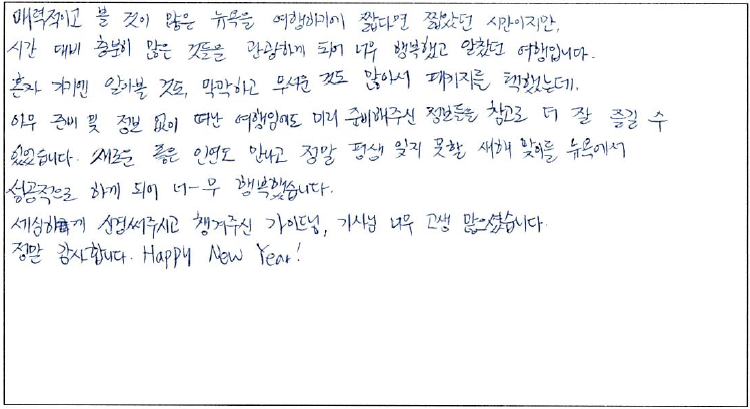 매력적이고 볼 것이 많은 뉴욕을 여행하기에 짧다면 짧았던 시간이지만,
시간 대비 충분히 많은 것들을 관광하게 되어 너무 행복했고 알찼던 여행입니다.
혼자 가기엔 알아볼 것도, 막막하고 무서운 것도 많아서 패키지를 택했는데,
아무 준비 및 정보 없이 떠난 여행임에도 미리 준비해주신 정보들을 참고로 더 잘 즐길 수
있었습니다. 새로운 좋은 인연도 만나고 정말 평생 잊지 못할 새해 맞이를 뉴욕에서
성공적으로 하게 되어 너-무 행복했습니다.
세심하게 신경써주시고 챙겨주신 가이드님, 기사님 너무 고생 많으셨습니다.
정말 감사합니다. Happy New Year!